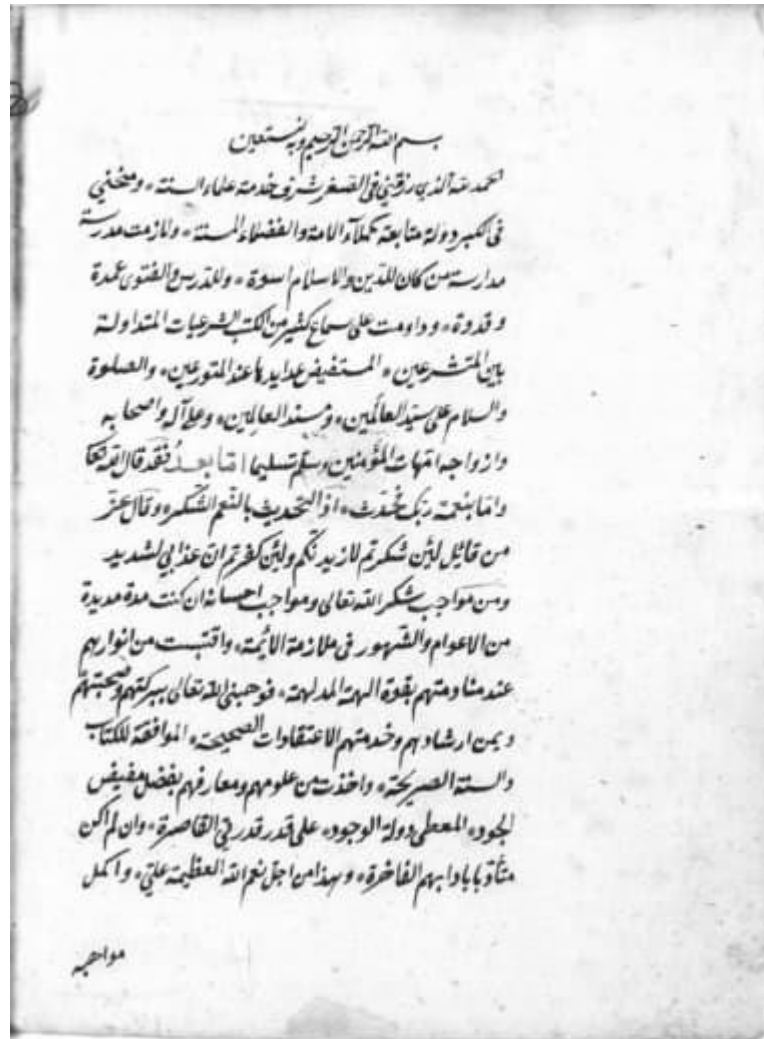 بسم الله الرحمن الرحيم وبه نستعين
الحمد لله الذي رزقني في الصغر شرف خدمة علماء السنة، ومنحني
في الكبر دولة متابعة كملاء الامة والفضلاء المسنة، ولازمت مدرسة
مدارسة من كان للدين والاسلام اسوة، وللدرس والفتوى عمدة
وقدوة، وداومت على سماع كثير من الكتب الشرعيات المتداولة
بين المتشرعين، المستفيض عوايدها عند المتورعين، والصلوة
والسلام على سيد العالمين، ومسند العالمين، وعلى آله واصحابه
وازواجه امهات المؤمنين وسلم تسليما اما بعد فقد قال الله تعالى
واما بنعمة ربك فحدث، اذ التحديث بالنعم الشكر، وقال عز
من قائل لئن شكرتم لازيدنكم ولئن كفرتم ان عذابي لشديد
ومن مواجب شكر الله تعالى ومواجب احسانه ان كنت مدة مديدة
من الاعوام والشهور في ملازمة الائمة، واقتبست من انوارهم
عند منادمتهم بقوة الهمة المدلهمة، فوهبني الله تعالى ببركتهم وصحبتهم
وبمن ارشادهم وخدمتهم الاعتقادات الصحيحة، الموافقة للكتاب
والسنة الصريحة، واخذت من علومهم ومعارفهم بفضل مفيض
الجود، المعطي دولة الوجود، على قدر قدرتي القاصرة، وان لم اكن
متأدبا بادابهم الفاخرة، وهذا من اجل نعم الله العظيمة علي، واكمل
مواهبه